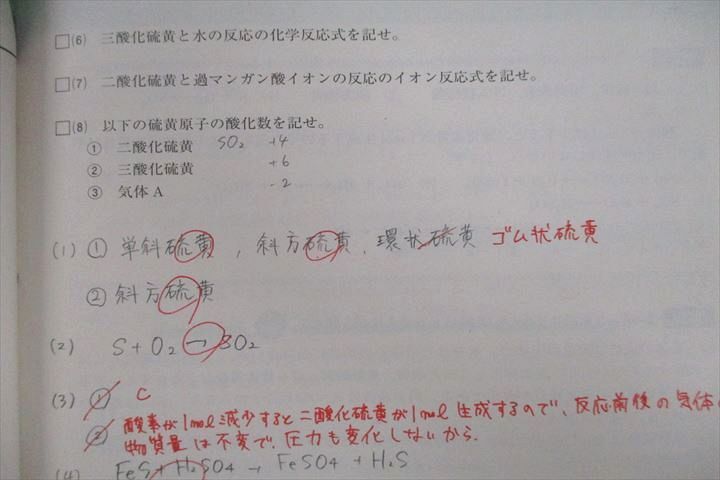 □(6) 三酸化硫黄と水の反応の化学反応式を記せ。
□(7) 二酸化硫黄と過マンガン酸イオンの反応のイオン反応式を記せ。
□(8) 以下の硫黄原子の酸化数を記せ。
① 二酸化硫黄 SO₂ +4
② 三酸化硫黄 +6
③ 気体A -2
(1) ① 単斜硫黄, 斜方硫黄, 環状硫黄 ゴム状硫黄
② 斜方硫黄
(2) S+O₂→SO₂
(3) ① C
② 酸素が1mol減少すると二酸化硫黄が1mol生成するので、反応前後の気体の
物質量は不変で、圧力も変化しないから.
(4) FeS+H₂SO₄→FeSO₄+H₂S